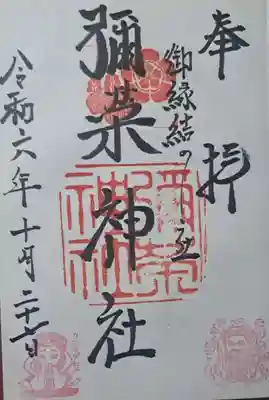 奉拝
御縁結の社
彌榮神社
令和六年十月二十七日